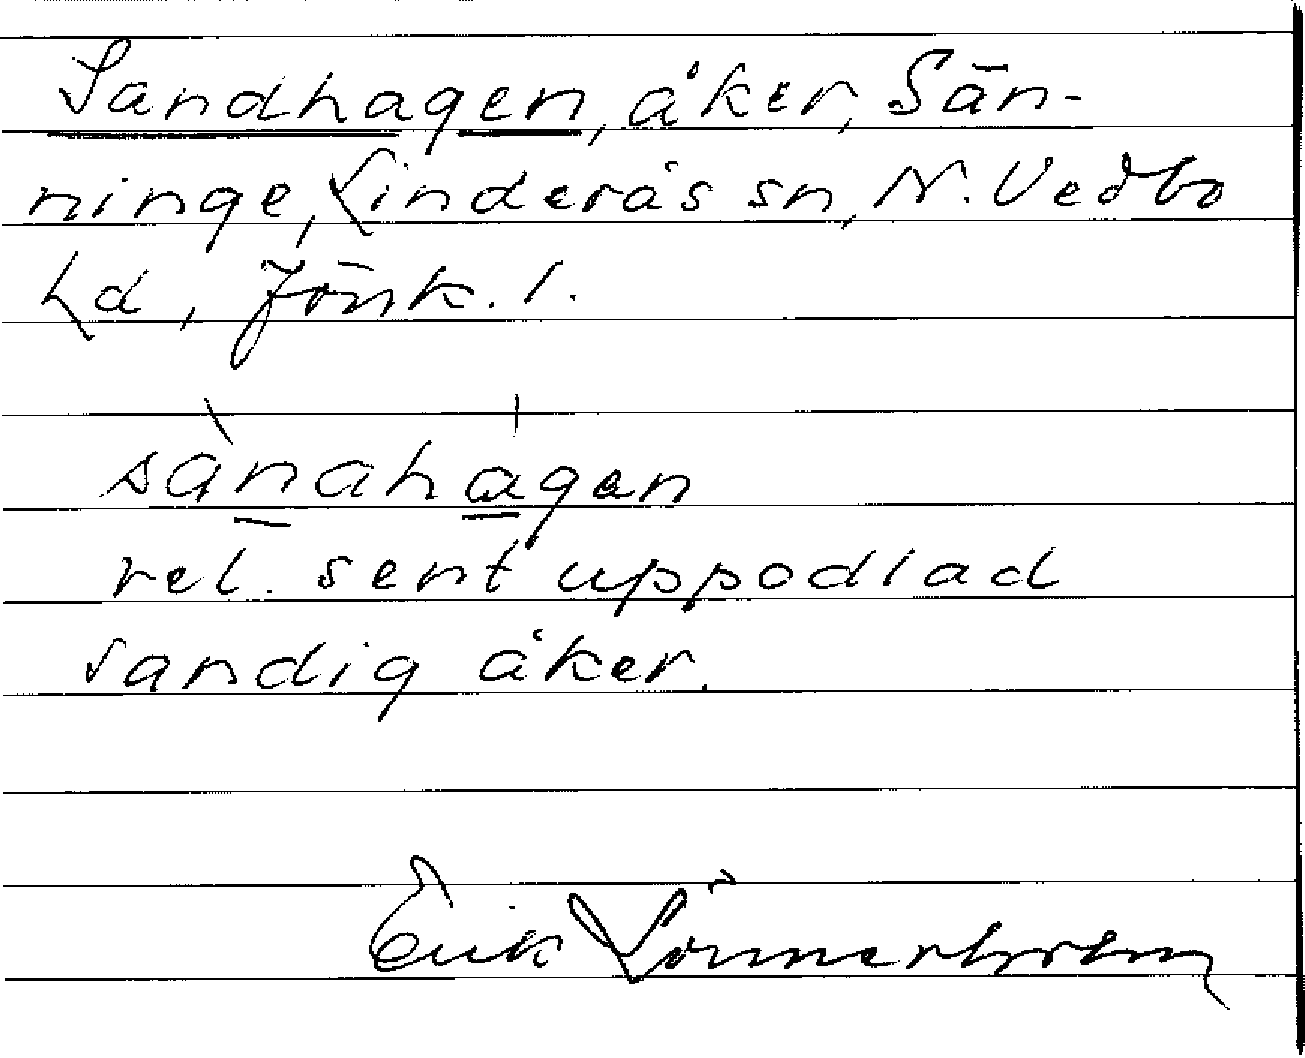 Sandhagen, åker, Sän-
ninge, Linderås sn, N. Vedbo
hd, Jönk. l.
sànahagen
rel. sent uppodlad
sandig åker.
Erik Lönnerholm